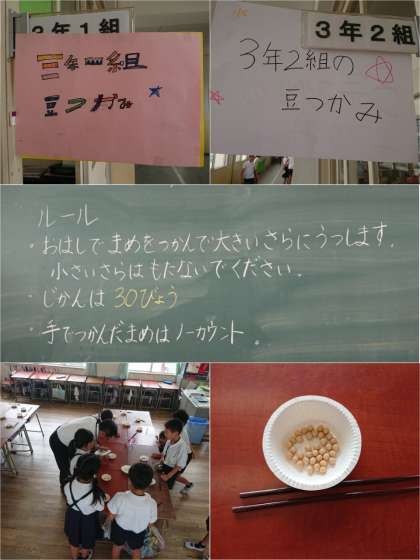 3年1組
三年一組
豆つかみ
3年2組
3年2組の
豆つかみ
ルール
・おはしでまめをつかんで大きいさらにうつします。
小さいさらはもたないでください。
・じかんは30びょう
・手でつかんだまめはノーカウント。